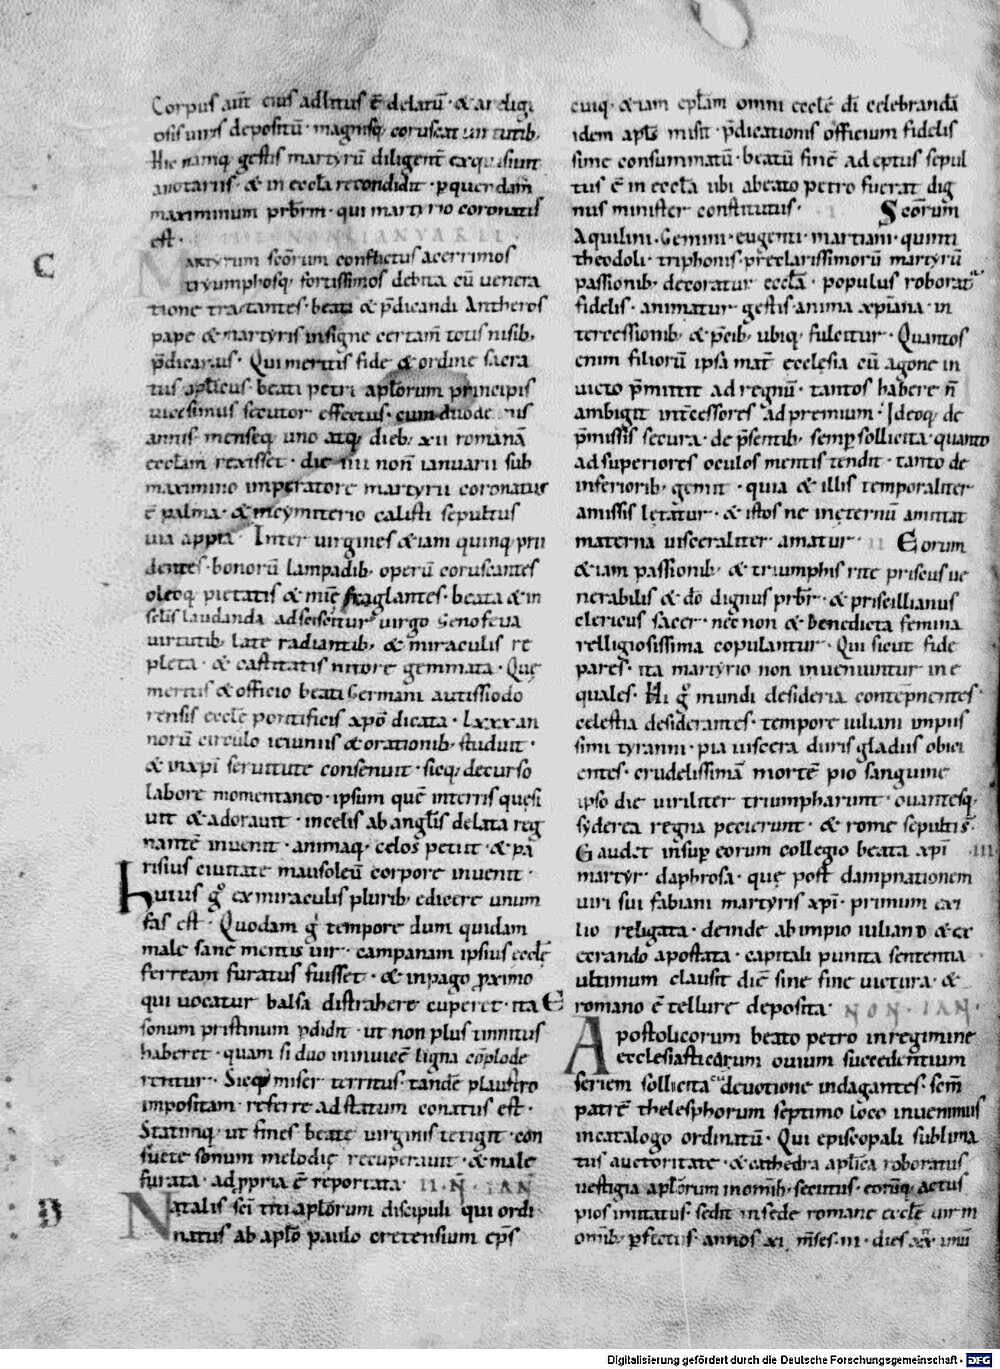 Corpus aut̄ eius adlitus ē delatū · & a religi
osis uiris depositū · magnisq; coruscat uirtutib;
Hic namq; gestis martyrū diligent̄ exquisiuit
anotariis · & in eccl̄a recondidit · p quendam
maximinum prb̄rm · qui martyrio coronatus
est · III NON IANVARII
C
Martyrum scōrum conflictus acerrimos
tryumphosq; fortissimos debita cū uenera
tione tractantes · beati & p̄dicandi Antheros
pape & martyris insigne certam̄ totis nisib;
p̄dicatus · Qui meritis fide & ordine sacra
tus apl̄icus · beati petri apl̄orum principis
uicesimus secutor effectus · cum duode nis
annis menseq; uno atq; dieb; xii romanā
eccl̄am rexisset · die iiii non̄ ianuarii sub
maximino imperatore martyrii coronatus
ē palma · & in cymiterio calisti sepultus
uia appia · Inter uirgines & iam quinq; pru
dentes · bonorū lampadib; operū coruscantes
oleoq; pietatis & mie fraglantes · beata & in
selis laudanda adsciscitur uirgo Genofeua
uirtutib; late radiantib; & miraculis re
pleta · & castitatis nitore gemmata · Que
meritis & officio beati Germani autissiodo
rensis eccle pontificis xp̄o dicata · Lxxx an
norū circulo ieiuniis & orationib; studuit ·
& in xp̄i seruitute consenuit · sicq; decurso
labore momentaneo · ipsum quē in terris quesi
uit & adorauit · in celis ab angl̄is delata reg
nantē inuenit · animaq; celos petiit · & pa
risius ciuitate mausoleū corpore inuenit ·
Huius g° ex miraculis plurib; edicere unum
fas est · Quodam g° tempore dum quidam
male sane mentis uir · campanam ipsius eccle
ferream furatus fuisset · & in pago proximo
qui uocatur balsa distrahere cuperet · ita
sonum pristinum p̄didit · ut non plus tinnitus
haberet · quam si duo inuicē ligna cōplode
rentur · Sicq; miser territus · tandē plaustro
impositam · referre ad statum conatus est ·
Statimq; ut fines beate uirginis tetigit · con
suete sonum melodie recuperauit · & male
furata · ad p̄pria ē reportata · II · N̄ · IAN̄
D
Natalis sc̄i titi apl̄orum discipuli qui ordi
natus ab apl̄o paulo cretensium ep̄s
cuiq; & iam epl̄am omni eccle di celebrandā
idem apl̄s misit · p̄dicationis officium fidelis
sime consummatū · beatū finē adeptus sepul
tus ē in eccl̄a ubi abeato petro fuerat dig
nus minister constitutus · I · Scōrum
Aquilini · Gemini · eugenti · martiani · quinti
theodoli · triphonis · preclarissimorū martyrū
passionib; decoratur eccl̄a · populus roborat
fidelis · animatur gestis anima xp̄iana · in
tercessionib; & p̄cib; ubiq; fulcitur · Quantos
enim filiorū ipsa mat̄ ecclesia cū agone in
uicto p̄mittit ad regnū · tantos habere n̄
ambigit int̄cessores ad premium · Ideoq; de
p̄missis secura · de p̄sentib; semp sollicita · quanto
ad superiores oculos mentis tendit · tanto de
inferiorib; gemit · quia & illis temporaliter
amissis letatur · & istos ne in eternū amittat
materna uisceraliter amatur · II Eorum
& iam passionib; & triumphis rite priscus ue
nerabilis & do dignus prb̄r · & priscillianus
clericus sacer · nec non & benedicta femina
relligiosissima copulantur · Qui sicut fide
pares · ita martyrio non inueniuntur ine
quales · Hi g° mundi desideria contepnentes ·
celestia desiderantes · tempore iuliani impiis
simi tyranni · pia uiscera duris gladiis obici
entes · crudelissimā mortē pio sanguine
ipso die uiriliter triumpharunt · ouantesq;
syderea regna pecierunt · & rome sepultis ·
Gaudet insup eorum collegio beata xp̄i · III
martyr · daphrosa · que post dampnationem
uiri sui fabiani martyris xp̄i · primum exi
lio religata · deinde ab impio iuliano & ex
cerando apostata · capitali punita sententia
ultimum clausit diē sine fine uictura · &
E
romano ē tellure deposita · NON · IAN ·
Apostolicorum beato petro in regimine
ecclesiasticarum ouium succedentium
seriem sollicita deuotione indagantes · scm̄
patrē thelesphorum septimo loco inuenimus
in catalogo ordinatū · Qui episcopali sublima
tus auctoritate · & cathedra apl̄ica roboratus
uestigia apl̄orum in omīb; secutus · eorūq; actus
pios imitatus · sedit in sede romane eccle uir in
omīb; pfectus · annos xi · m̄ses · iii · dies xx
Digitalisierung gefördert durch die Deutsche Forschungsgemeinschaft - DFG